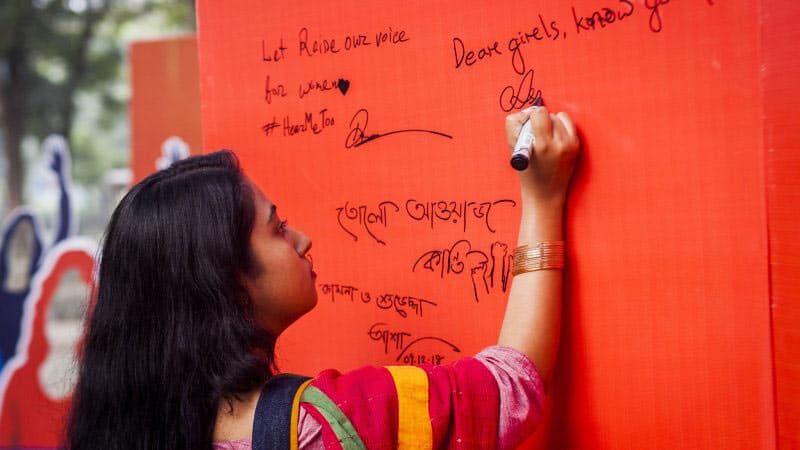 Let Raise our voice
for women
#HearMeToo
Dear girls, know yo
তোলো আওয়াজ
কামনা ও শুভেচ্ছা
আশা
09.12.18